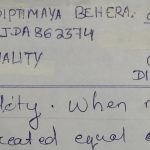 DIPTIMAYA BEHERA.
JDA862374
ALITY
DI
lity. When
reated equal